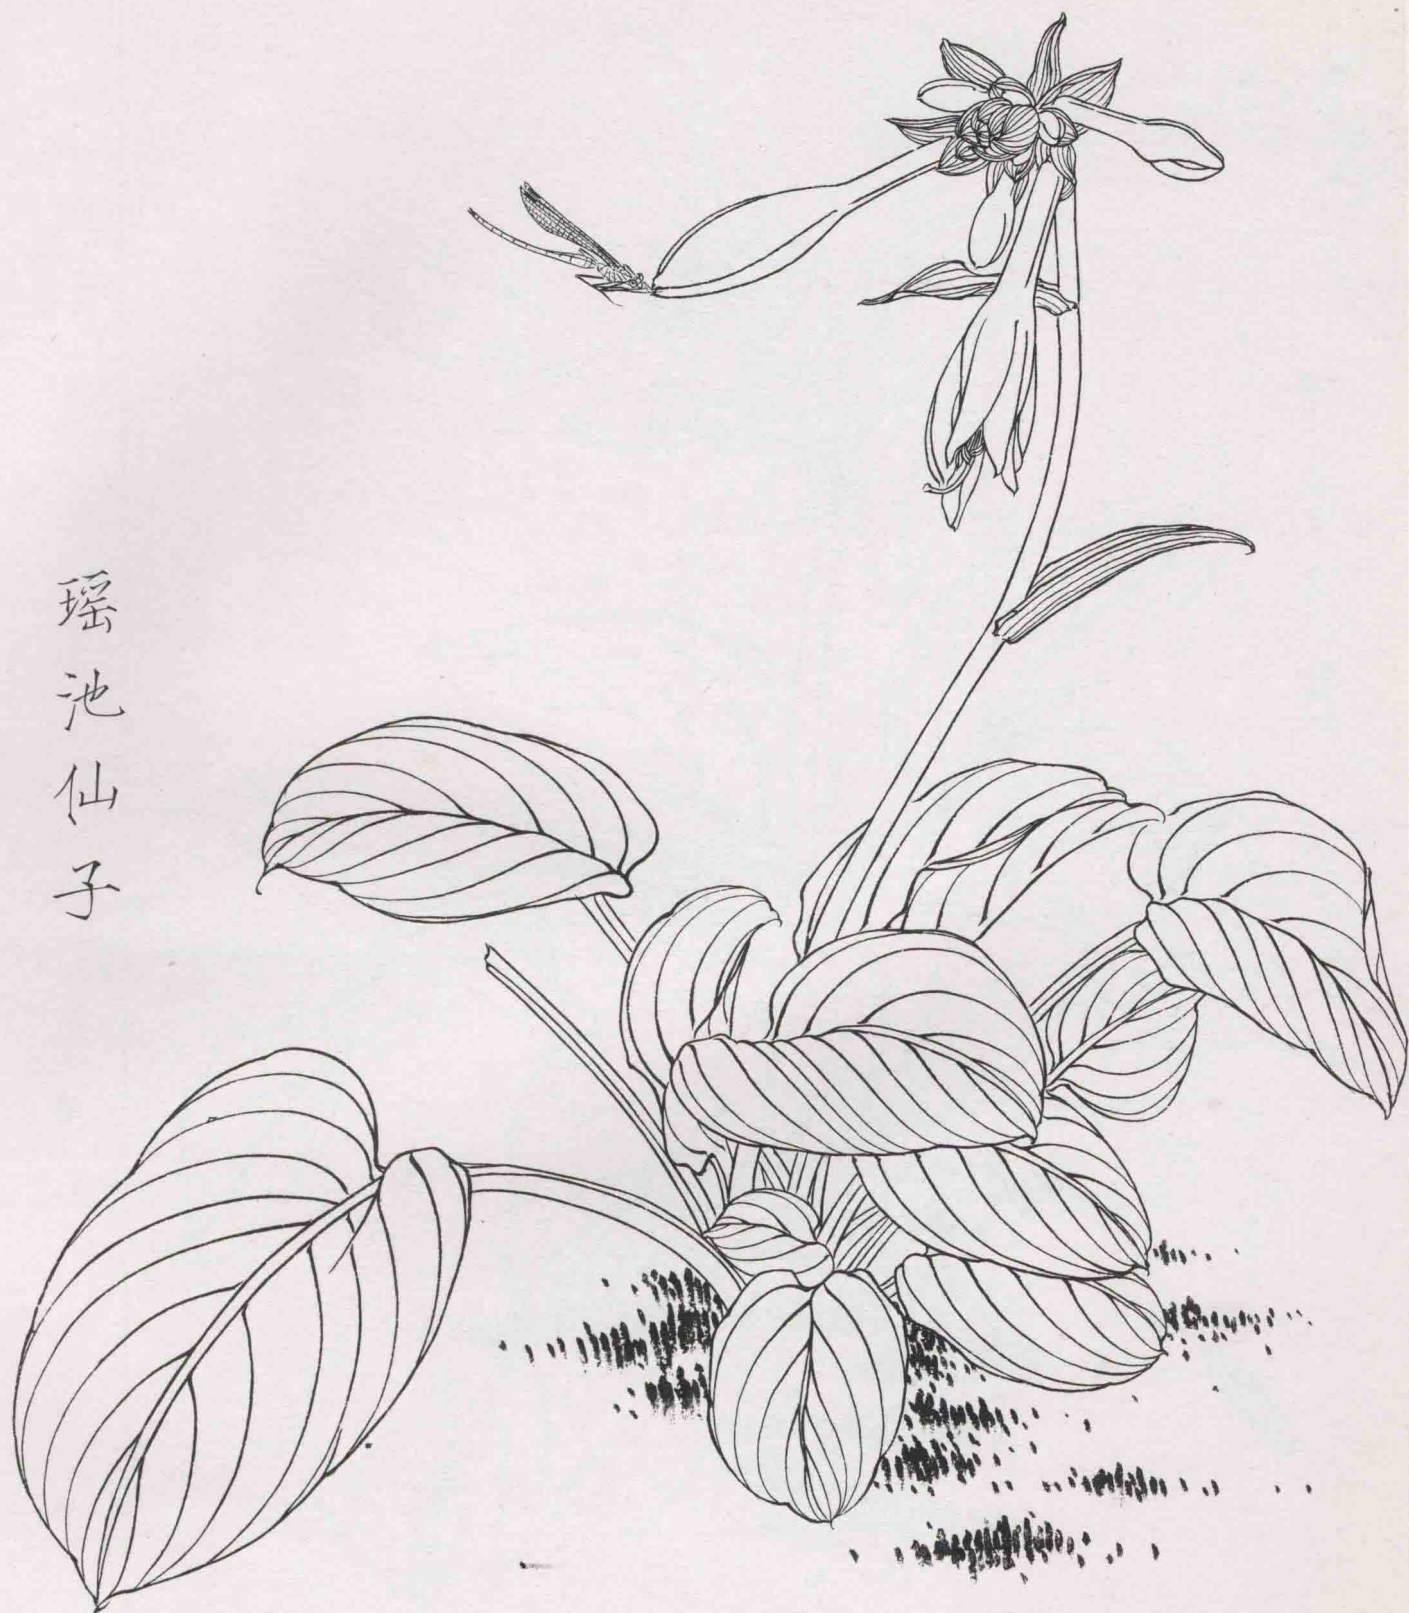 瑶池仙子